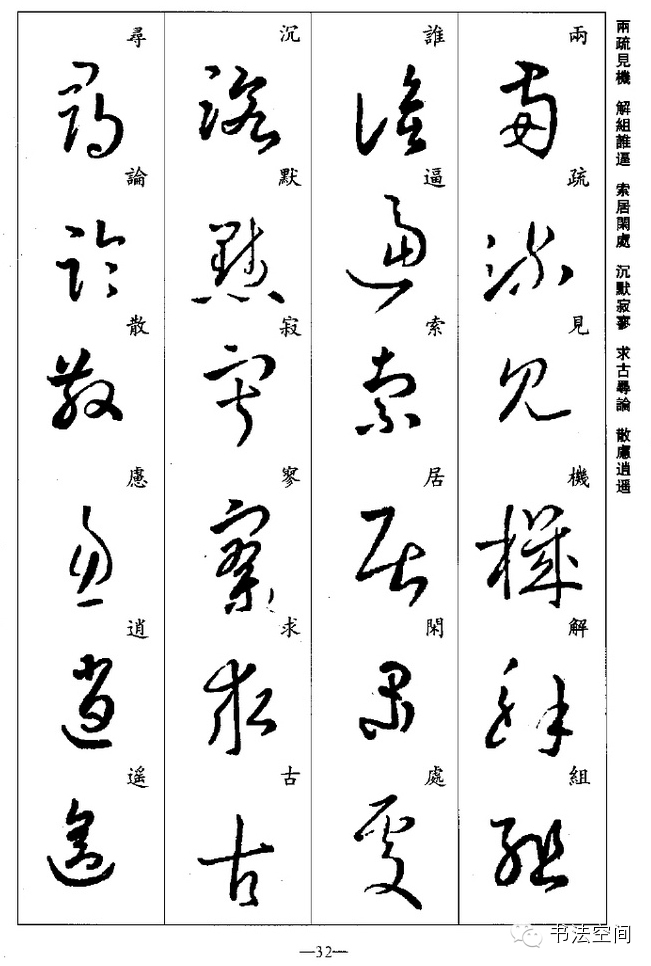 兩疏見機　解組誰逼　索居閑處　沉默寂寥　求古尋論　散慮逍遥
兩疏見機解組
誰逼索居閑處
沉默寂寥求古
尋論散慮逍遥
—32—
书法空间